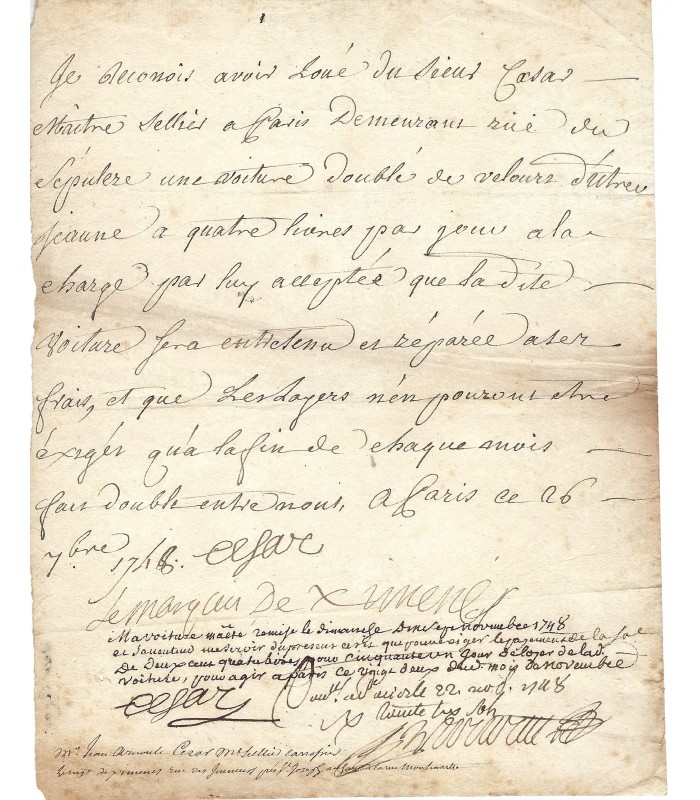 Je Reconois avoir Loué du sieur Cæsar
Maitre sellier a Paris Demeurant ruë du
Sépulcre une voiture doublé de velours d'utrec
Jeaune a quatre livres par jour a la
charge par luy acceptée que la dite
Voiture sera entretenu et réparée a ses
frais, et que Les Loyers n'en pouront etre
éxigés qu'a la fin de chaque mois
fait double entre nous, a Paris ce 26
7.bre 1748. Cesar
Le marquis De Ximenes
Ma voiture m'a été remise le dimanche novembre 1748
et Jentend me servir du present que pour exiger le payement de la
De Deux cent quatre livres pour cinquante un jour De loyer de lad.
voiture, pour agir a paris ce vingt deux dud. moy de novembre
Cesar
22 nov. 1748
Mr. Jean Cesar Md. sellier carossier
ximenes rue des Jeuneurs St. Joseph la rue Montmartre